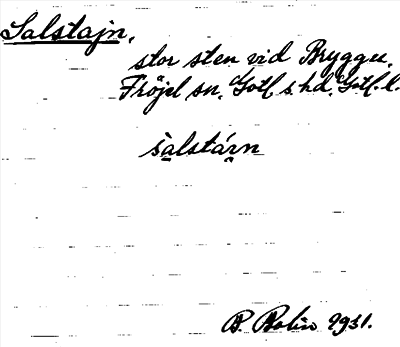 Salstajn,
stor sten vid Bryggu,
Fröjel sn, Gotl s. hd, Gotl. l.
salstárn
B. Bolin 1931.